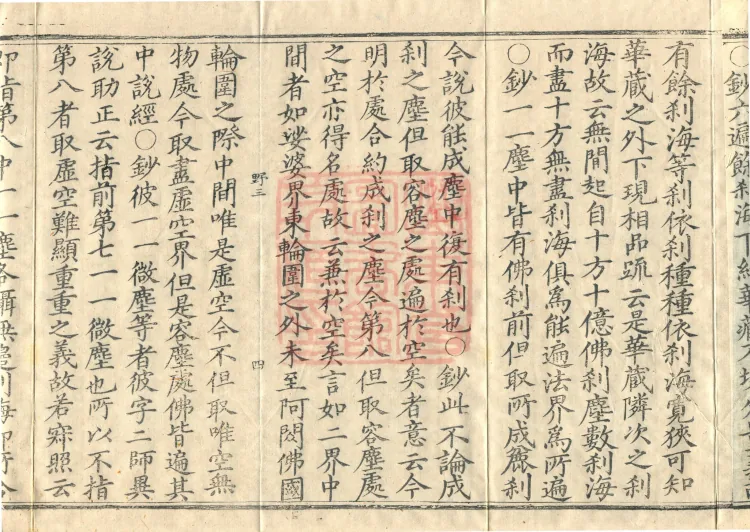 ○鈔六遍餘刹海下
有餘刹海等刹依刹種種依刹海寬狹可知
華藏之外下現相品䟽云是華藏隣次之刹
海故云無間起自十方十億佛刹塵數刹海
而盡十方無盡刹海俱爲能遍法界爲所遍
○鈔一一塵中皆有佛刹前但取所成麁刹
今說彼能成塵中復有刹也○鈔此不論成
刹之塵但取容塵之處遍於空矣者意云今
明於處合約成刹之塵今第八但取容塵處
之空亦得名處故云兼於空矣言如二界中
間者如娑婆界東輪圍之外未至阿閦佛國
野三
四
輪圍之際中間唯是虛空今不但取唯空無
物處今取盡虛空界但是容塵處佛皆遍其
中說經○鈔彼一一微塵等者彼字二師異
說助正云指前第七一一微塵也所以不指
第八者取虛空難顯重重之義故若寂照云
即指第八中一一塵各攝無邊刹海